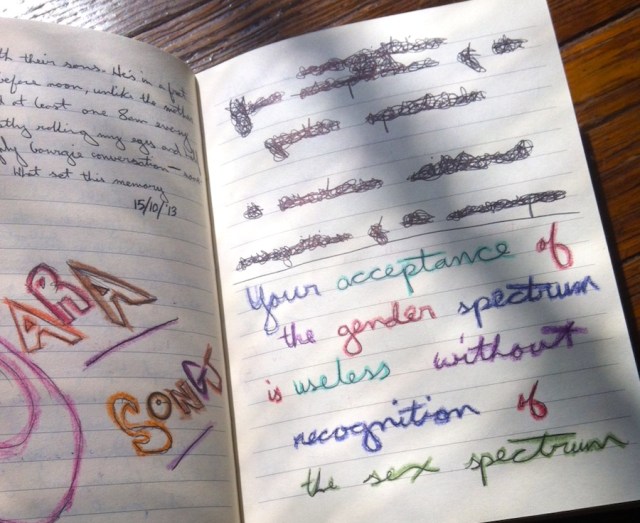 th their sons. He's in a
before noon, unlike the
at least one 8am every
rolling my eyes and
bourgie conversation
What set this memory
15/10/'13
ARA
SONG
Your acceptance of
the gender spectrum
is useless without
recognition of
the sex spectrum